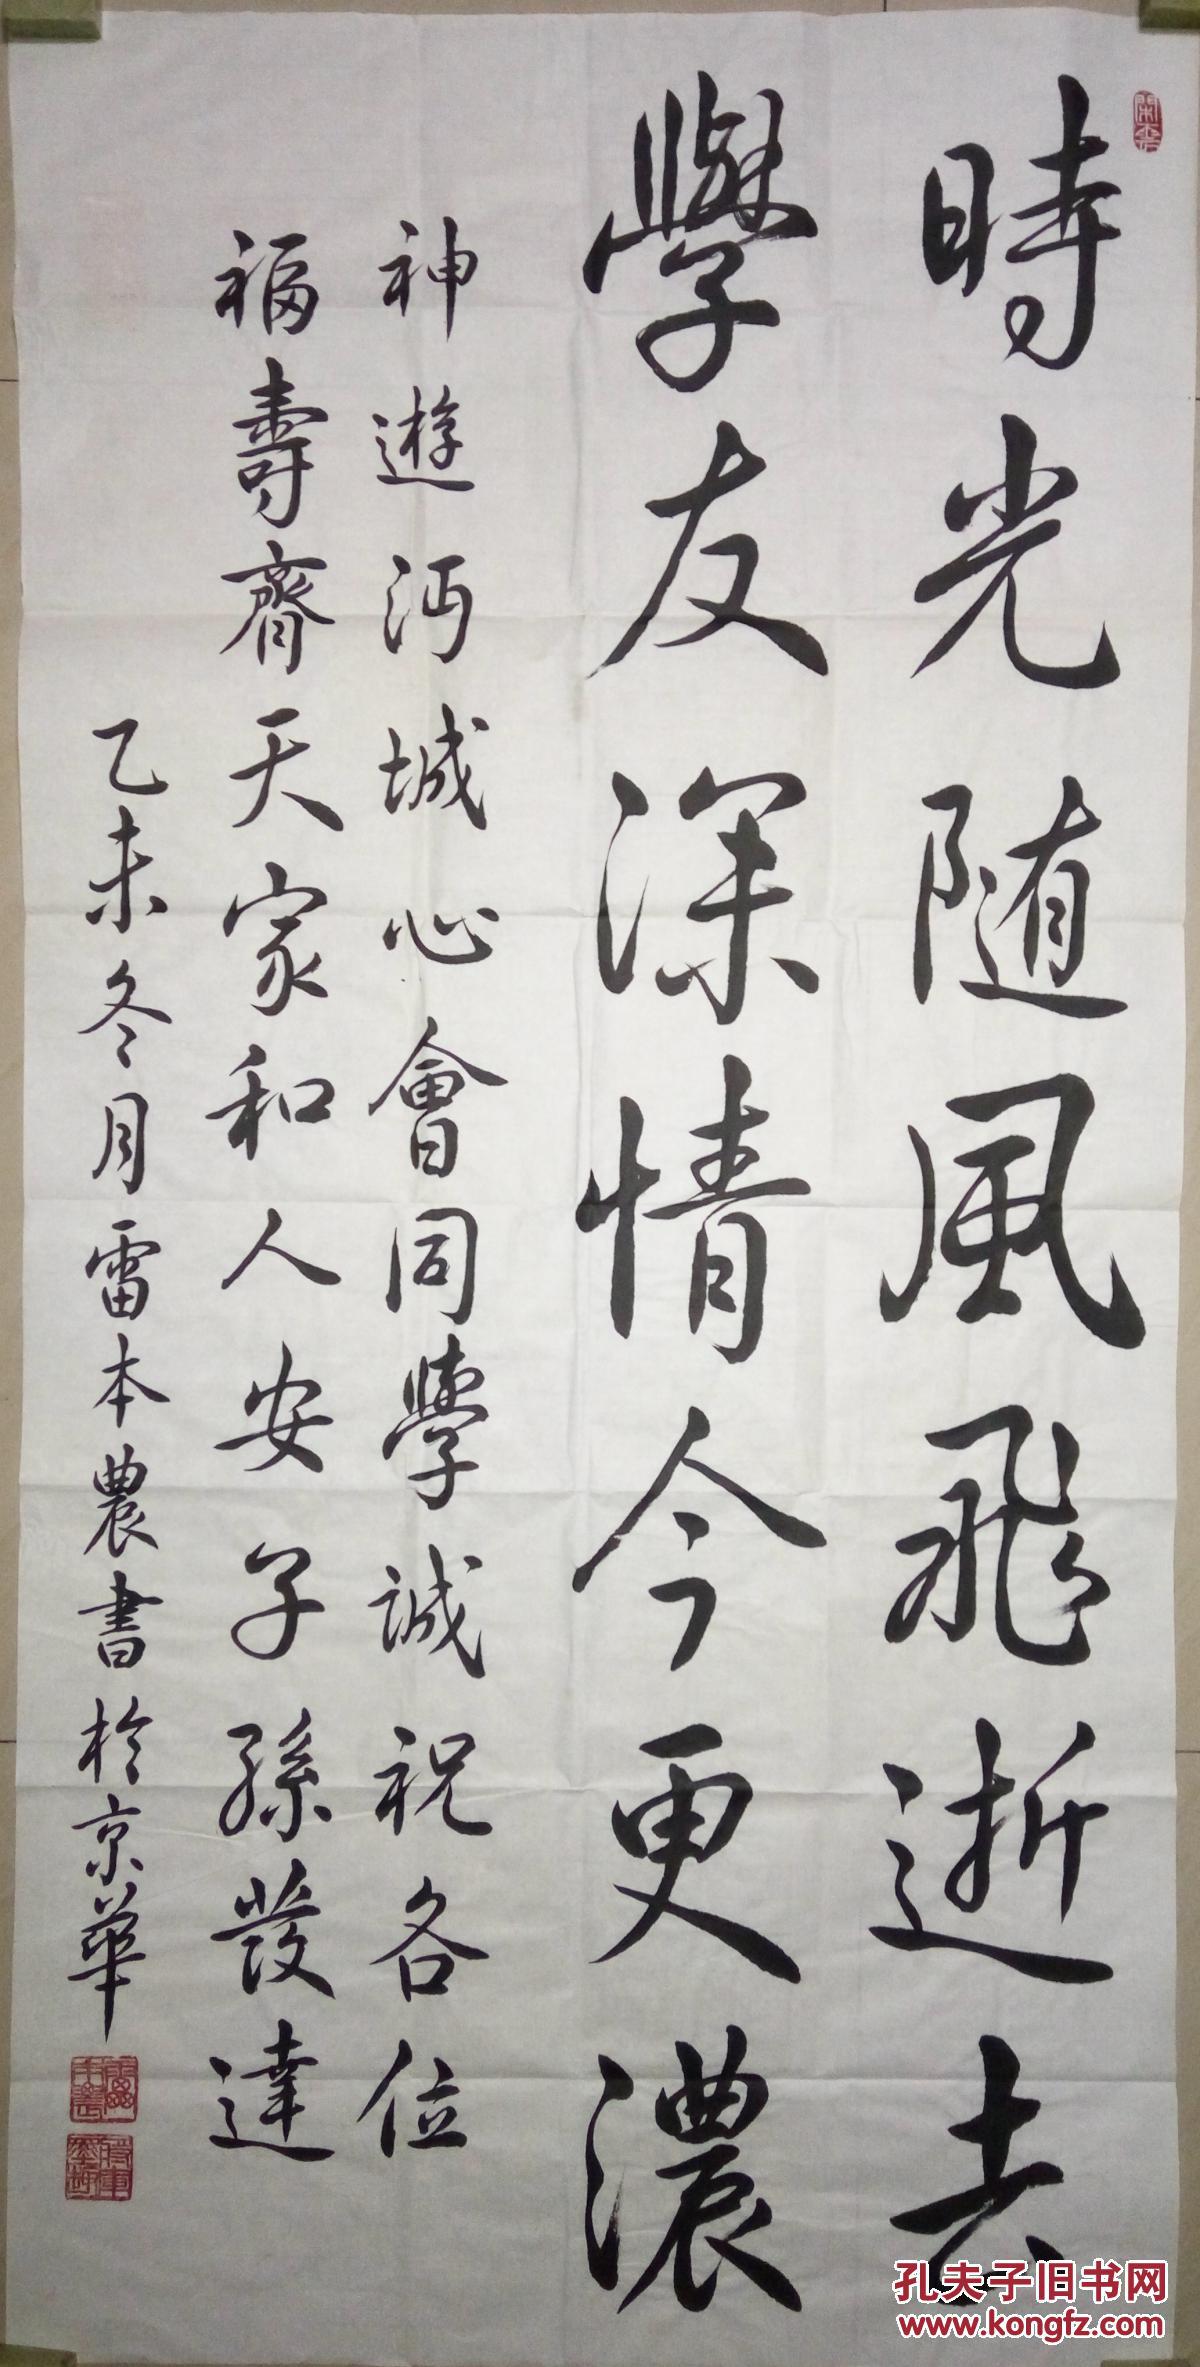 時光随風飛逝去
學友深情今更濃
神遊沔城心會同學誠祝各位
福壽齊天家和人安子孫發達
乙未冬月雷本農書於京華
孔夫子旧书网
www.kongfz.com